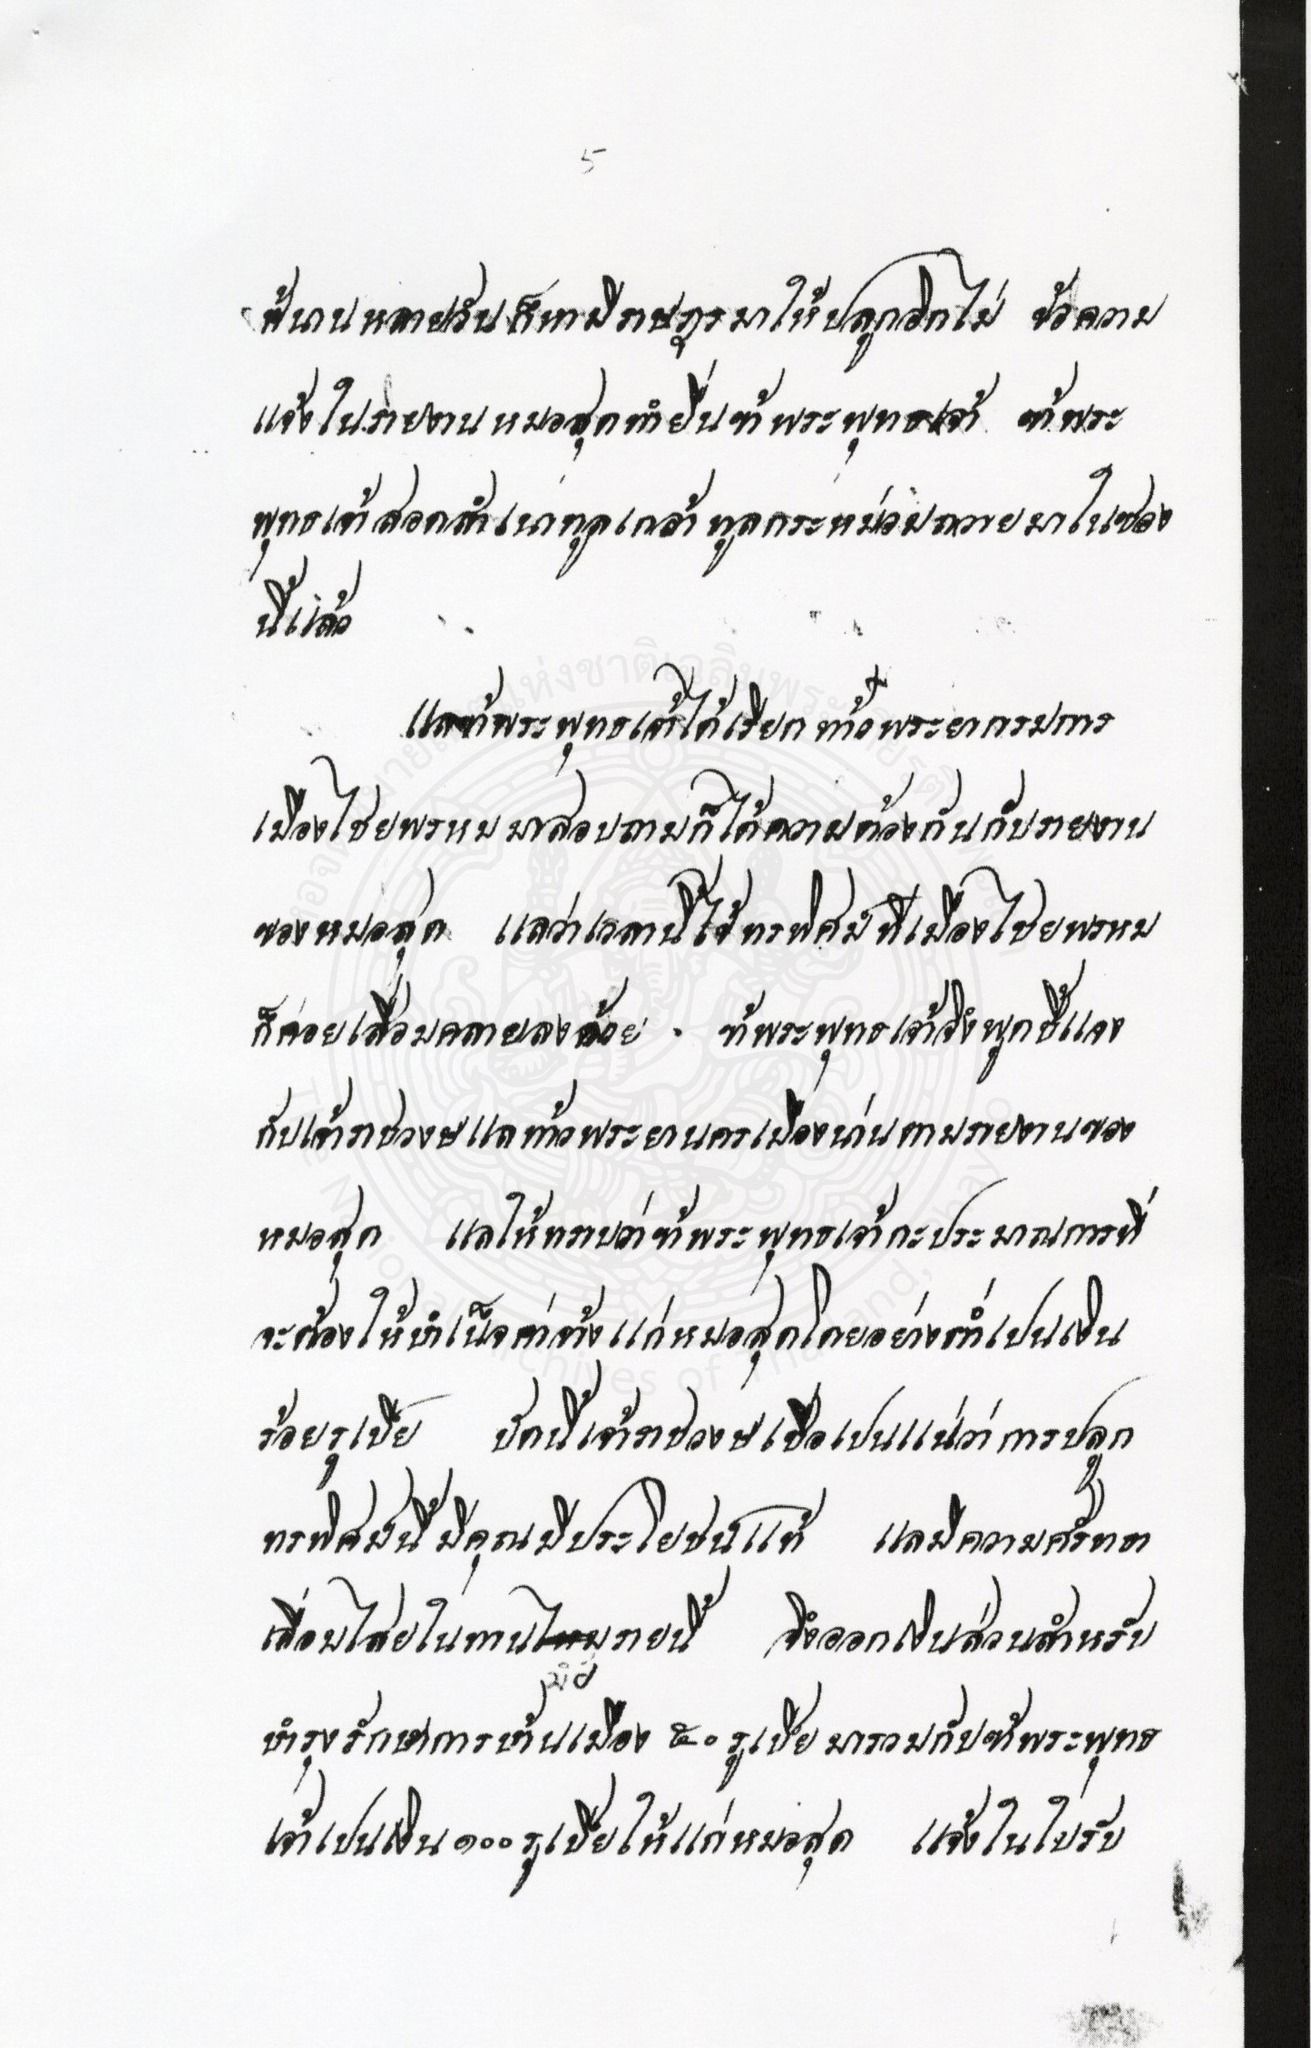 5
ฟ้นานหลายวันก็หามีราษฎรมาให้ปลูกอีกไม่ ข้อความ
แจ้งในรายงานหมอสุดทำยื่นข้าพระพุทธเจ้า ข้าพระ
พุทธเจ้าสอดสำเนาทูลเกล้าทูลกระหม่อมถวายมาในซอง
นี้แล้ว
แลข้าพระพุทธเจ้าได้เรียกท้าวพระยากรมการ
เมืองไชยพรหมมาสอบถามก็ได้ความต้องกันกับรายงาน
ของหมอสุด แลว่าเวลานี้ไข้ทรพิศม์ที่เมืองไชยพรหม
ก็ค่อยเสื่อมคลายลงด้วย ข้าพระพุทธเจ้าจึงพูดชี้แจง
กับเจ้าราชวงษแลท้าวพระยานครเมืองน่านตามรายงานของ
หมอสุด แลให้ทราบว่าข้าพระพุทธเจ้ากะประมาณการที่
จะต้องให้บำเน็จค่าจ้างแก่หมอสุดโดยอย่างต่ำเปนเงิน
ร้อยรูเปีย บัดนี้เจ้าราชวงษเชื่อเปนแน่ว่าการปลูก
ทรพิศม์นี้มีคุณมีประโยชน์แท้ แลมีความศรัทธา
เลื่อมไสยในทานรายนี้ จึงออกเงินส่วนสำหรับ
บำรุงรักษาการบ้านเมือง ๕๐ รูเปีย มารวมกับข้าพระพุทธ
เจ้าเปนเงิน ๑๐๐ รูเปียให้แก่หมอสุด แจ้งในใบรับ
หอจดหมายเหตุแห่งชาติเฉลิมพระเกียรติ
National Archives of Thailand